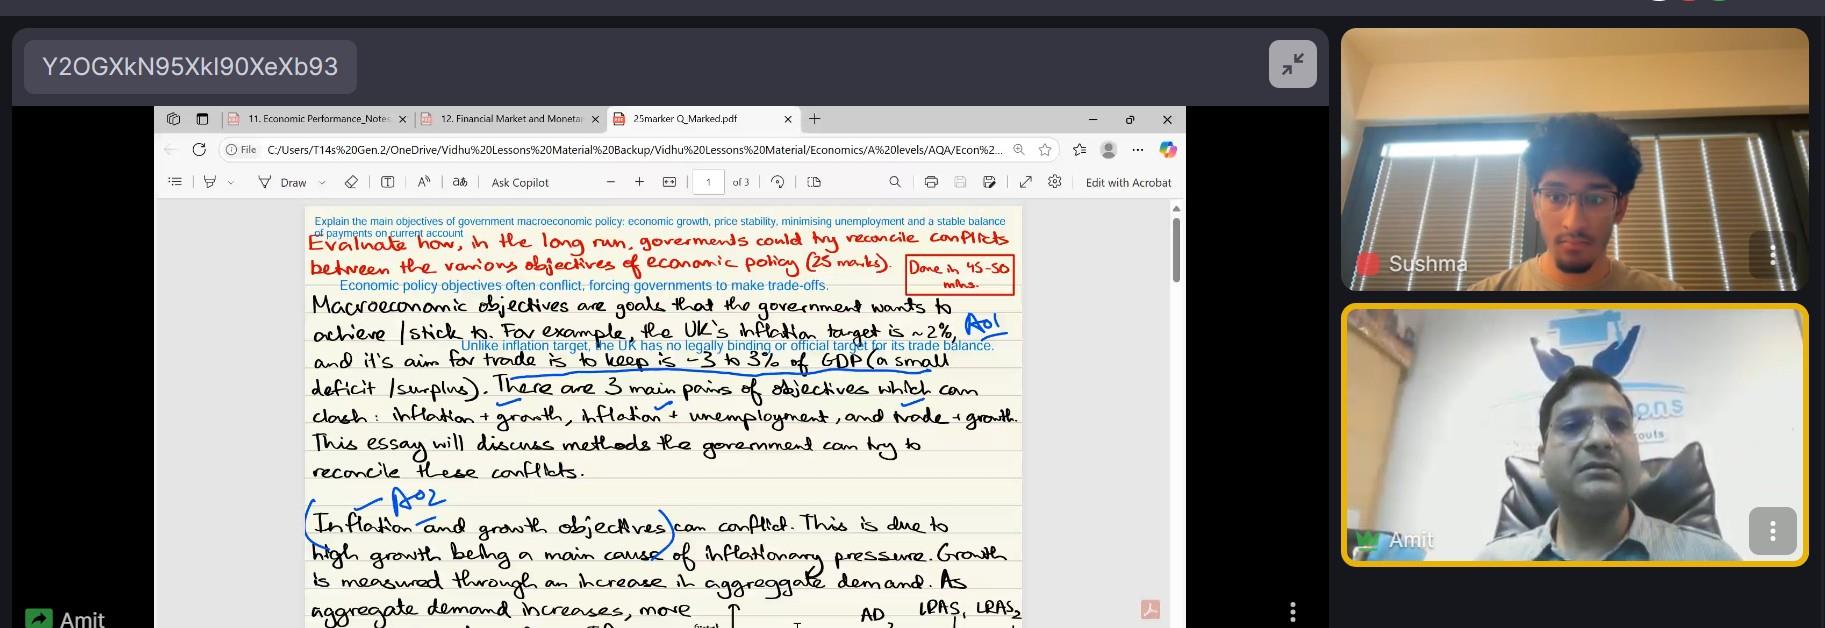 Y2OGXkN95XkI90XeXb93
11. Economic Performance_Notes
12. Financial Market and Monetar
25marker Q_Marked.pdf
File
C:/Users/T14s%20Gen.2/OneDrive/Vidhu%20Lessons%20Material%20Backup/Vidhu%20Lessons%20Material/Economics/A%20levels/AQA/Econ%2...
Draw
Ask Copilot
1 of 3
Edit with Acrobat
Explain the main objectives of government macroeconomic policy: economic growth, price stability, minimising unemployment and a stable balance
of payments on current account
Evaluate how, in the long run, goverments could try reconcile conflicts
between the various objectives of economic policy (25 marks).
Done in 45-50
mins.
Economic policy objectives often conflict, forcing governments to make trade-offs.
Macroeconomic objectives are goals that the government wants to
achieve / stick to. For example, the UK's inflation target is ~2%,
AO1
Unlike inflation target, the UK has no legally binding or official target for its trade balance.
and it's aim for trade is to keep is -3 to 3% of GDP (a small
deficit / surplus). There are 3 main pairs of objectives which can
clash: inflation + growth, inflation + unemployment, and trade + growth.
This essay will discuss methods the government can try to
reconcile these conflicts.
AO2
Inflation and growth objectives can conflict. This is due to
high growth being a main cause of inflationary pressure. Growth
is measured through an increase in aggreggate demand. As
aggregate demand increases, more
AD
LRAS1 LRAS2
Sushma
Amit
ons
outs
Amit